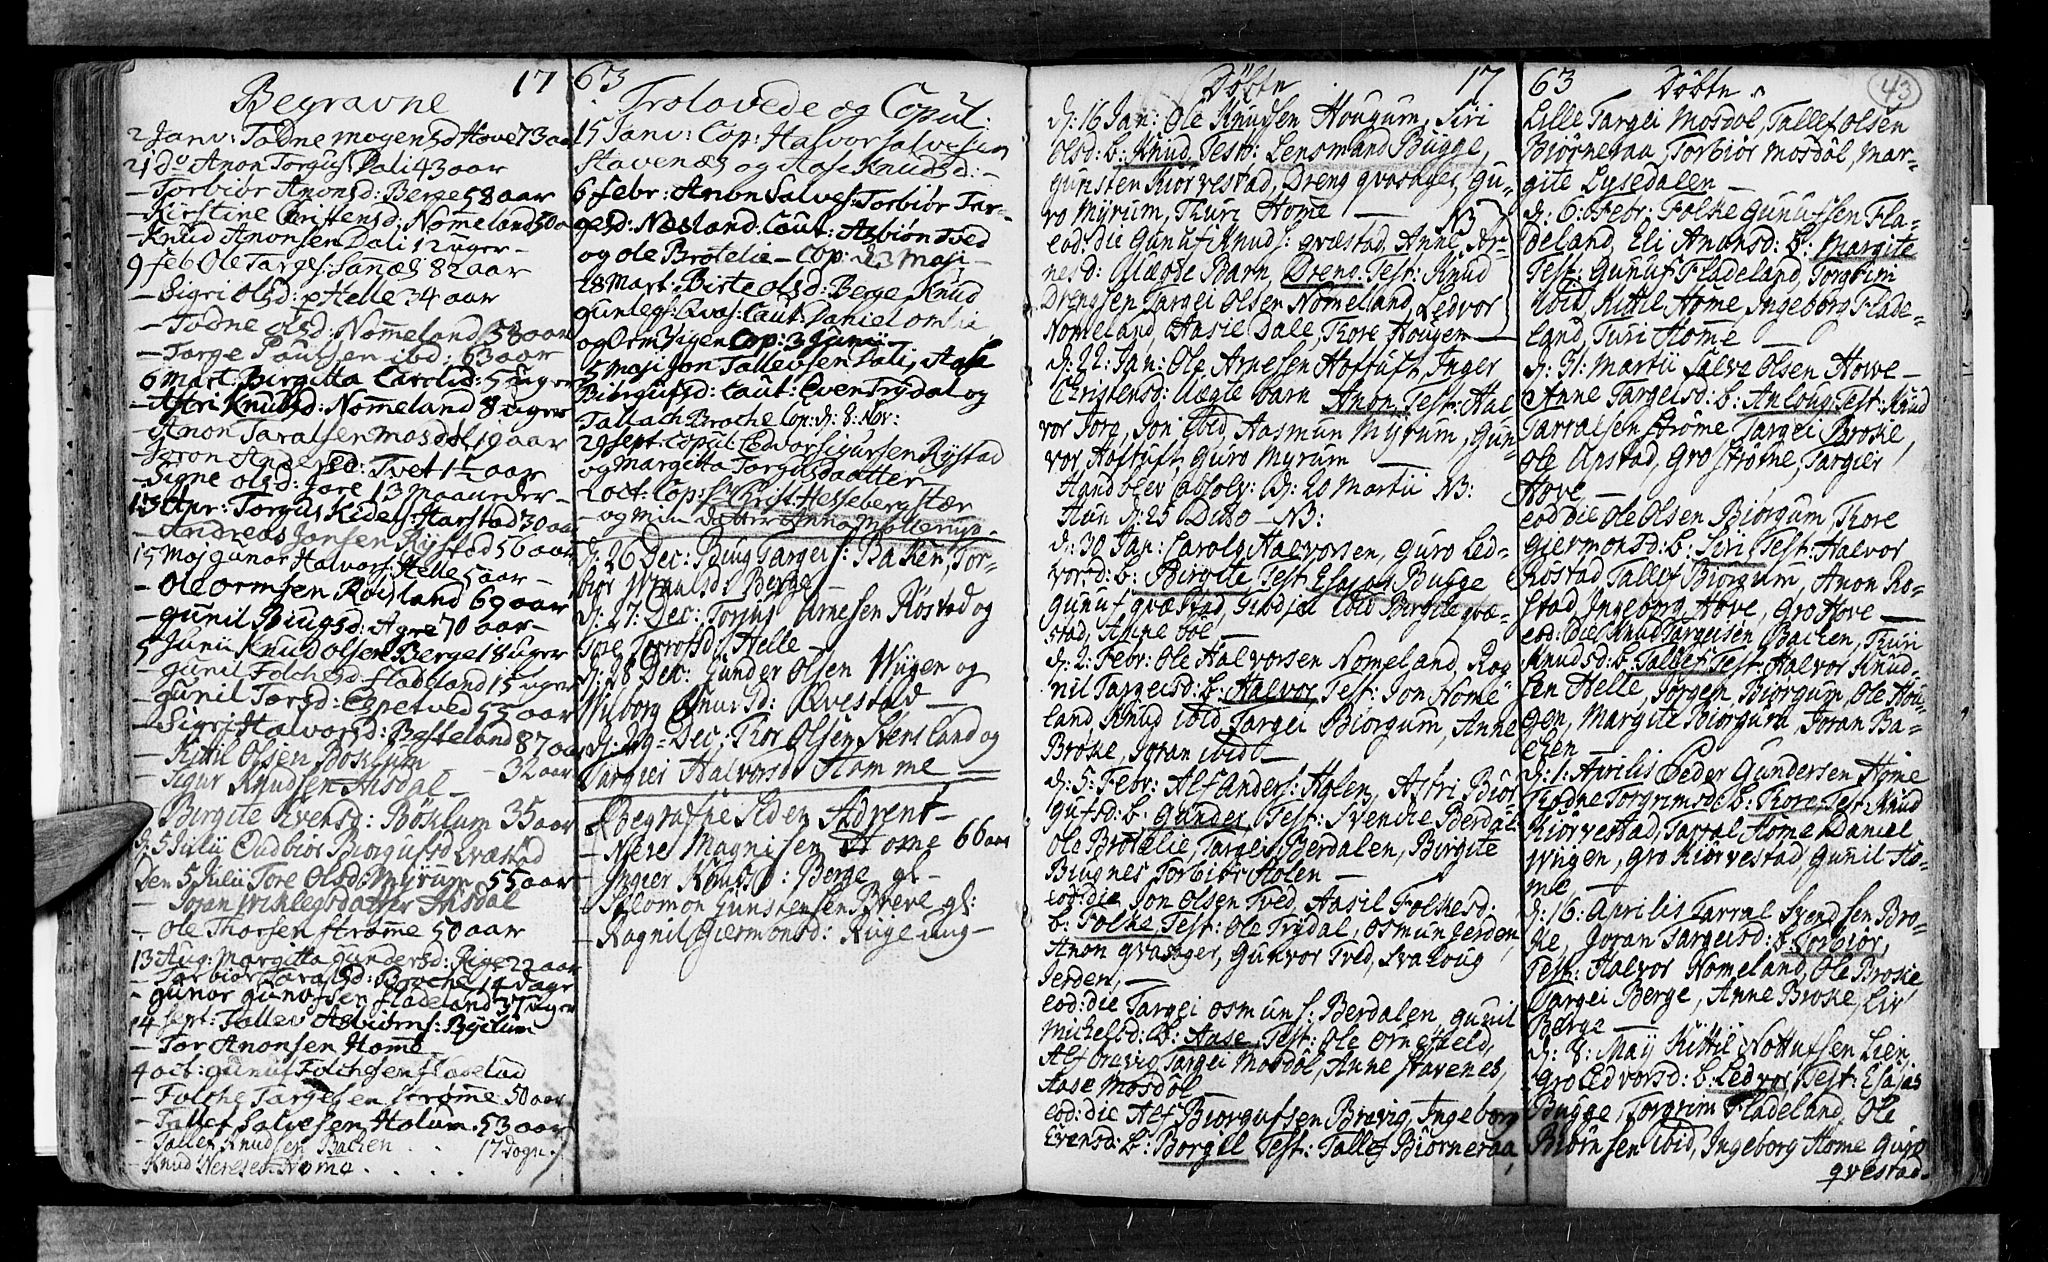 17
Begravne
2 Janv: Todne mogensd Hove 73 aar
21 do Anon Torgus: Dali 43 aar
– Torbiør Anonsd: Berge 58 aar
– Kirstine Christensd: Nomeland 50 a
– Knud Anonsen Dali 12 uger –
9 Feb Ole Targes: Sannes 82 aar
– Sigri Olsd: Helle 34 aar
– Todne olsd: Nomeland 58 aar
– Targe Paulsen ibd: 63 aar
6 Mart: Birgitta Carolid: 5 uger
– Astri Knudsd: Nomeland 8 uger
– Anon Taralsen mosdøl 19 aar
– Joron Andersd: Tvet 1½ aar
– Signe olsd: Jore 13 maaneder –
Apr: Torgus Kidels: Harstad 30 aar
– Andreas Jonsen Rystad 56 aar
15 Maj gunar Halvors: Helle 5 aar –
– Ole ormsen Roidland 69 aar
– gunil Biugsd: Agre 70 aar –
5 Junii Knud olsen Berge 18 uger
– gunil Folchesd: Fladeland 15 uger
– gunil Torsd: Egpetved 55 aar
– Sigri Halvorsd: Besteland 87 aar
– Kittil Olsen Böklum – 32 aar
– Sigur Knudsen Aasdal –
– Birgite Evensd: Böklum 35 aar
d: 5 Julii Oudbiør Biorgufsd qvæstad
Den 5 Julii Tore Olsd: Myrum 55 aar
– Joran vinlegsdatter Aasdal
– Ole Thorsen Strøme 50 aar
13 Aug: Margitta Gundersd: Rige 22 aar
– Torbiør Taralsd: Broche 14 dage
– gunar gunufsen Fladeland 37 uger
14 Sept: Tallev Asbiørns: Bykum
– Tor Anonsen Home
4 oct: gunuf Folchesen Fladelad
– Folche Targesen Strøme 50 aar
– Tallef Salvesen Holum 53 aar
– Tallef Knudsen Bachen 17 dogn.
– Knud Neresen Home
63
Trolovede og Copul:
15 Janv: Cop: Halvor Salvesen
Stavenes og Aase Knudsd: –
6 Febr: Anon Salves: Torbiør Tar-
gesd: Næsland. Caut: Asbiøn Tved
og ole Brøtelie – Cop: 23 Maji –
28 Mart: Birte olsd: Berge, Knud
gunlegs: Qvas: Caut: Daniel ombi
og Orm Vigen Cop: 3 Junii –
5 Maji Jon Tallevsen Dali, Aase
Biorgufsd: Caut: Even Trydal og
Tallach Broche Cop: d: 8. Nov:
29 Sept: Copul: Ledvor Sigursen Rystad
og Margitta Torgusdaatter –
2 oct: Cop: Sr Christ Hesseberg Stær
– og min datter Anna
d: 26 Dec: Biug Targeis: Baken, Tor-
biør Haralsd: Berge –
d: 27. Dec: Torjus Arnesen Röstad og
Tore Torrosd: Helle –
d: 28 Dec: Gunder Olsen Wiigen og
Wiborg Knudsd: qvestad –
d: 29 Dec: Thor Olsen Stensland og
Targier Halvorsd Homme –
Begrafne siden Advent –
– Nere Magnisen Home 66 aar
– Ingier Knudsd: Berge gl –
– Salomon Gunstensen Breve gl:
– Ragnil Giermonsd: Rüge ung –
Döbte 17
d: 16 Jan: Ole Knudsen Hougum, Siri
Olsd: b: Knud, Test: Lensmand Bugge,
Gunsten Kiörvestad, Dreng qvasager, Gu-
ro Myrum, Thuri Home – N3
eod: die Gunuf Knuds: qvæstad, Anne Ar-
nesd: Uægte Barn, Dreng Test: Knud
Drengsen Targei Olsen Nomeland, Ledvor
Nomeland, Aasie Dale, Thore Hougen –
d: 22: Jan: Ole Arnesen Hoftuft, Inger
Christensd: Uægte barn Anon Test: Hal
vor Jore, Jon ibid, Aasmun Myrum, Gun-
vor, Hoftuft, Guro Myrum –
Hand blev absolv: d: 20 Martii N3:
Hun d: 25 Dito – N3:
d: 30 Jan: Carolg Halvorsen, Guro Led-
vorsd: b: Birgite Test: Esajas Bugge
Gunuf qvæstad, ibid Birgite qvæ-
stad, Anne böe –
d: 2: Febr: Ole Halvorsen Nomeland, Rag
nil Targeisd: b: Halvor Test: Jon Nome-
land Knud ibid Targei Biorgum, Anne
Broke, Joran ibid –
d: 5: Febr: Alf Anders: Holen, Astri Biør
gufsd: b: Gunder, Test: Svenche Berdal
Ole Brotelie, Targei Berdalen, Birgite
Biugnes Torbiör Holen –
eod: die, Jon Olsen Tved, Aasil Folkesd:
b: Folke Test: Ole Trydal, Osmun Jerden,
Anon qvasager, Gunvor Tved, Svaloug
Jerden, –
eod: die Targei Osmuns: Berdalen, gunil
Michelsd: b: Aase, Test: Ole Ornefield,
Alf Bravig Targei Mosdöl, Anne Stavenes,
Aase Mosdöl –
eod: die Alf Biorgufsen Bravig, Ingeborg
Evensd: b: Borgel Test: Tallef Biörneraa,
63 Döbte 43
Lille Targei Mosdöl, Tallef Olsen
Biörneraa, Torbiör Mosdöl, Mar-
gite Lysedalen –
d: 6: Febr: Folke Gunufsen Fla-
deland, Eli Anonsd: b: Margite
Test: Gunuf Fladeland, Torgrim
ibid, Kittil Home, Ingeborg Flade-
land, Turi Home –
d: 31: Martii Salve Olsen Howe –
Anne Targeisd: b: Anloug Test: Knud
Tarralsen Ströme, Targei Broke,
Ole Upstad, Gro Ströme, Targier
Hove –
eod die Ole Olsen Biörgum, Thore
Giermonsd: b: Siri Test: Halvor
Röstad, Tallef Biorgum, Anon Rø-
stad, Ingeborg Hove, Gro Hove –
eod: die Knud Targeisen Bachen, Thuri
Knudsd: b. Tallef Test: Halvor Knud-
sen Helle, Jörgen Biörgum, Ole Hou-
gen, Margite Biorgum, Joran Ba-
chen –
d: 1: Aprilis Peder Gundersen Home
Todne Torgrimsd: b: Thore, Test: Knud
Kiörvestad, Tarral Home Daniel
Wiigen, Gro Kiörvestad, Gunil Ho-
me –
d: 16: Aprilis Tarral Svendsen Bro-
ke, Joran Targeisd: b: Torbiör,
Test: Halvor Nomeland, Ole Broke
Targei Berge, Anne Broke, Liv
Berge –
d: 8: Maÿ Kittil Nottufsen Lien,
Gro Ledvorsd: b: Ledvor, Test: Esajas
Bugge, Torgrim Fladeland, Ole
Biörnsen ibid, Ingeborg Home Guro
qvestad.